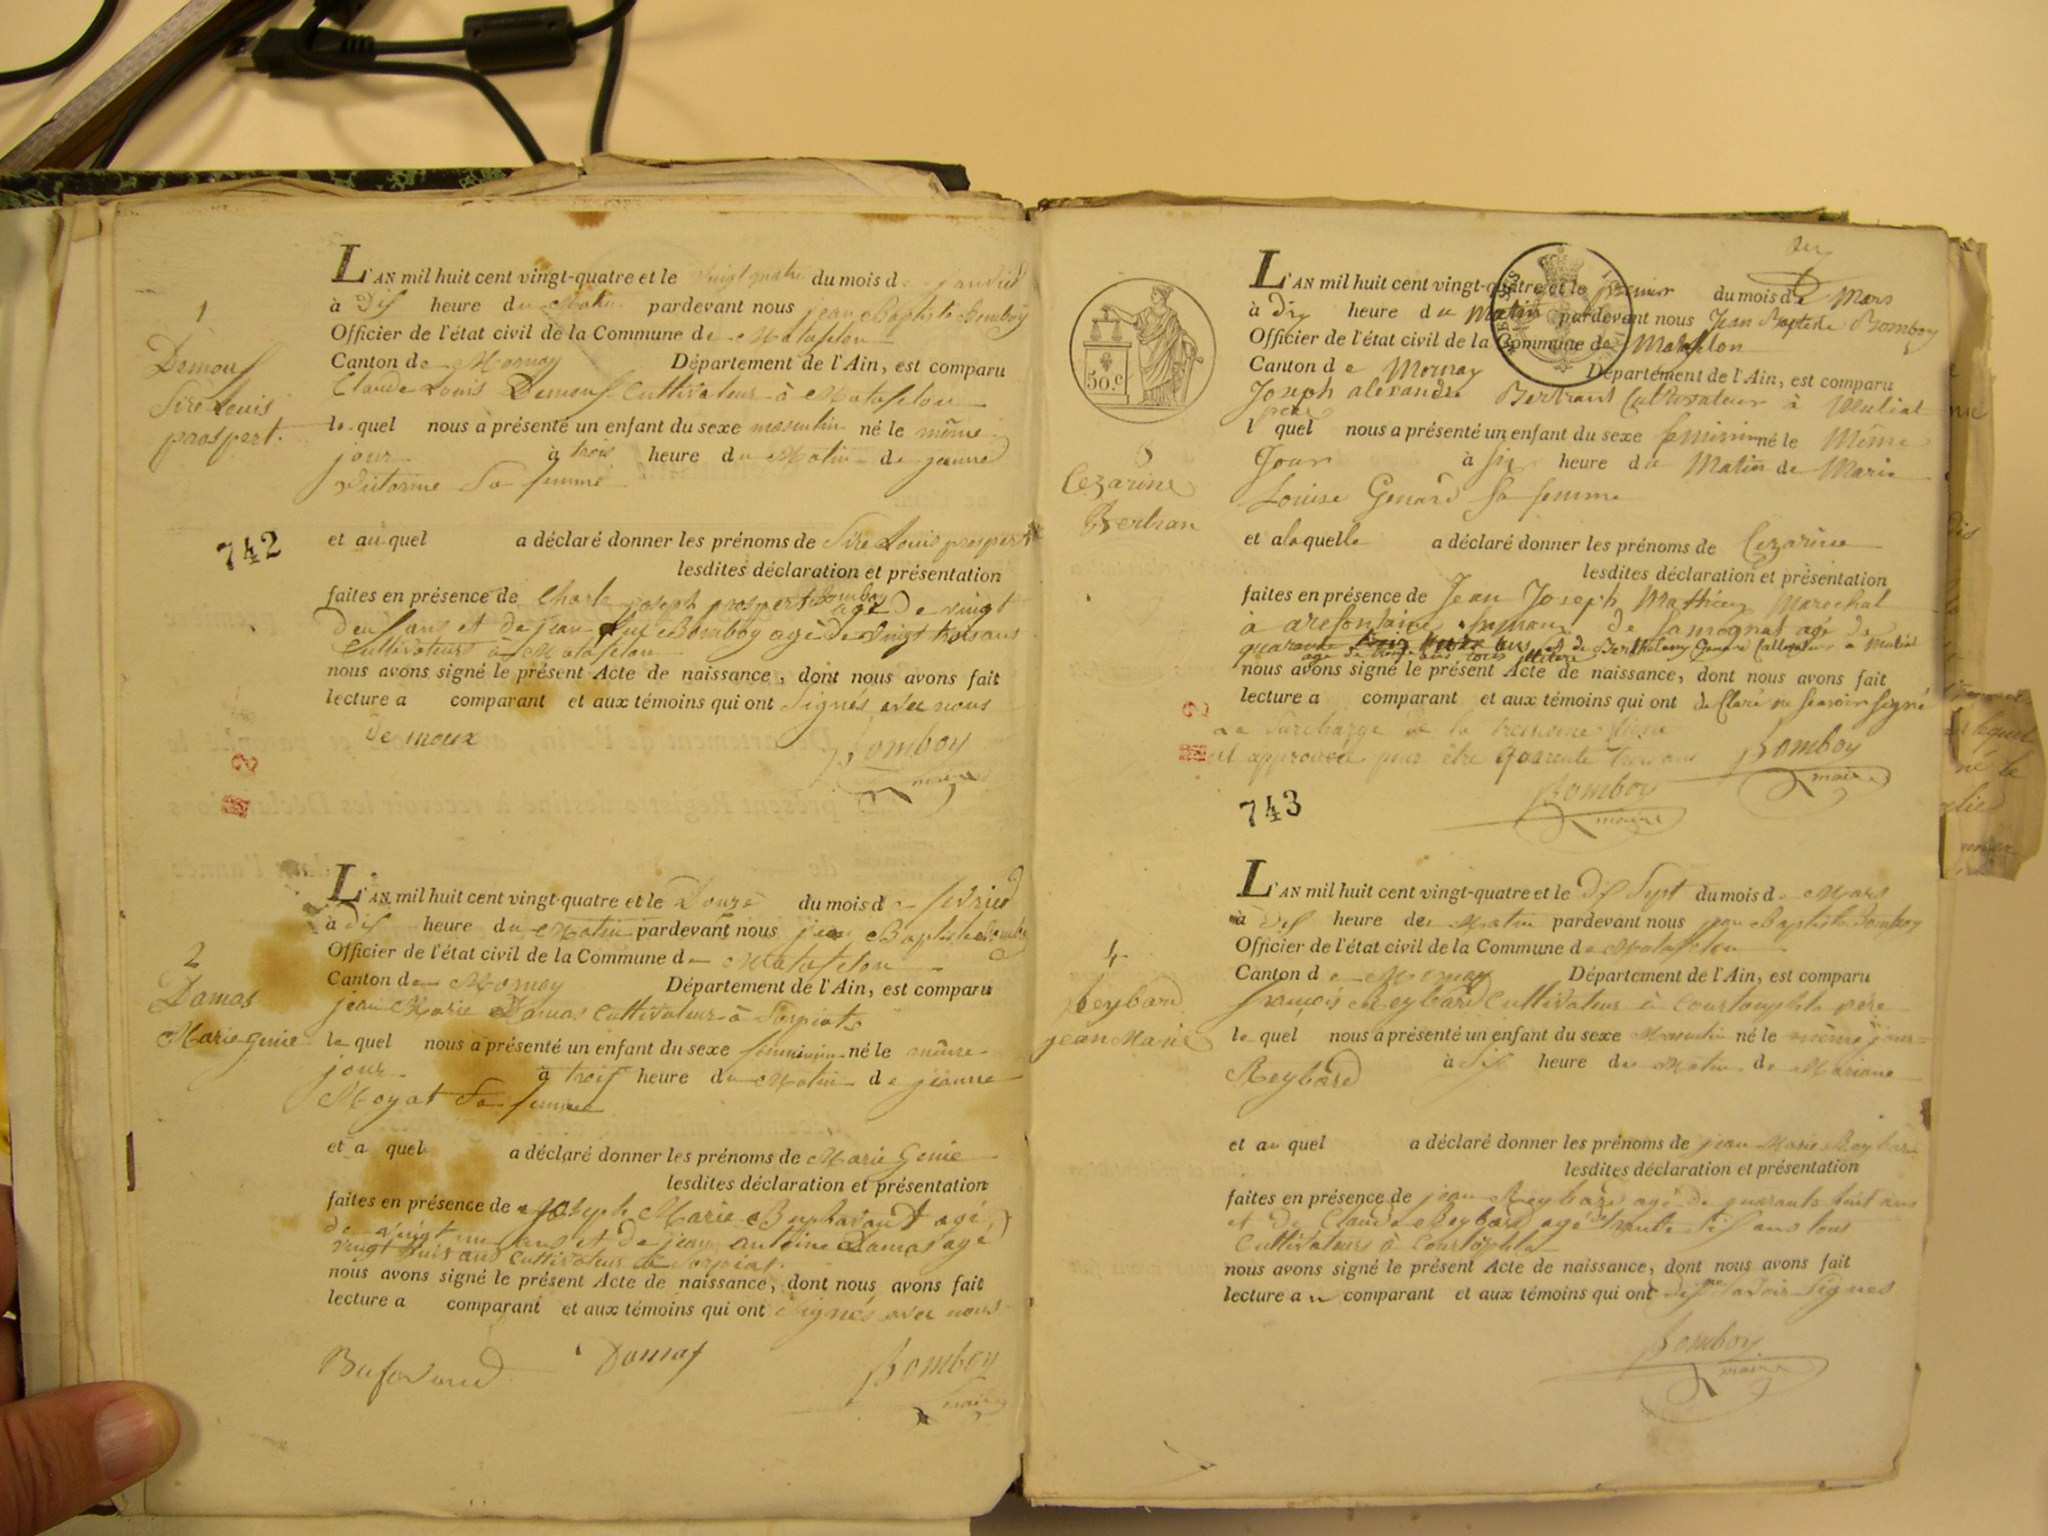 1
Demouf
Sire Louis
prospert.
L'AN mil huit cent vingt-quatre et le vingt quatre du mois de janvier
à dis heure du Matin pardevant nous jean Baptiste Bomboy
Officier de l'état civil de la Commune de Matafelon
Canton de Mornay Département de l'Ain, est comparu
Claude Louis Demouf Cultivateur à Matafelon
le quel nous a présenté un enfant du sexe masculin né le même
jour à trois heure du Matin de jeanne
victorine Sa femme
742
et au quel a déclaré donner les prénoms de Sire Louis prospert
lesdites déclaration et présentation
faites en présence de Charle joseph prospert Bomboy agé de vingt
deuf ans et de jean Bomboy agé de vingt trois ans
Cultivateurs à Matafelon
nous avons signé le présent Acte de naissance, dont nous avons fait
lecture a comparant et aux témoins qui ont Signés avec nous
de moux Bomboy
maire
2
Damas
Marie genie
L'AN mil huit cent vingt-quatre et le Douze du mois de fevrier
à dis heure du Matin pardevant nous jean Baptiste Bomboy
Officier de l'état civil de la Commune de Matafelon
Canton de Mornay Département de l'Ain, est comparu
jean Marie Damas Cultivateur à Corpiat
le quel nous a présenté un enfant du sexe feminin né le même
jour à trois heure du Matin de jeanne
Moyat Sa femme
et a quel a déclaré donner les prénoms de Marie Genie
lesdites déclaration et présentation
faites en présence de joseph Marie Buffavant agé
de vingt un ans et de jean antoine Damas agé
vingt huit ans Cultivateur à Corpiat
nous avons signé le présent Acte de naissance, dont nous avons fait
lecture a comparant et aux témoins qui ont Signés avec nous
Bufavand Damas Bomboy
maire
50.c
3
Cezarine
Bertran
L'AN mil huit cent vingt-quatre et le premier du mois de Mars
à dix heure du Matin pardevant nous Jean Baptiste Bomboy
Officier de l'état civil de la Commune de Matafelon
Canton de Mornay Département de l'Ain, est comparu
Joseph alexandre Bertrand Cultivateur à
pere
l quel nous a présenté un enfant du sexe feminin né le Même
Jour à six heure du Matin de Marie
Louise Genard sa femme
et a laquelle a déclaré donner les prénoms de Cezarine
lesdites déclaration et présentation
faites en présence de Jean Joseph Mathieu Marechal
à arefontaine Commune de Samognat agé de
quarante ans et de Berthelemy Genard Cultivateur a
nous avons signé le présent Acte de naissance, dont nous avons fait
lecture a comparant et aux témoins qui ont de Claré ne Scavoir Signé
La Surcharge de la treizieme ligne
est approuvée pour être quarante trois ans Bomboy
maire
Bomboy
maire
743
4
Reybard
jean Marie
L'AN mil huit cent vingt-quatre et le dis Sept du mois de Mars
à dis heure de Matin pardevant nous jean Baptiste Bomboy
Officier de l'état civil de la Commune de Matafelon
Canton de Mornay Département de l'Ain, est comparu
françois Reybard Cultivateur à Courtouphle pere
le quel nous a présenté un enfant du sexe Masculin né le même jour
à dis heure du Matin de Mariane
Reybard
et au quel a déclaré donner les prénoms de jean Marie Reybard
lesdites déclaration et présentation
faites en présence de jean Reybard agé de quarante huit ans
et de Claude Reybard agé trante sis ans tous
Cultivateurs à Courtouphle
nous avons signé le présent Acte de naissance, dont nous avons fait
lecture au comparant et aux témoins qui ont dis ne Savoir Signes
Bomboy
maire